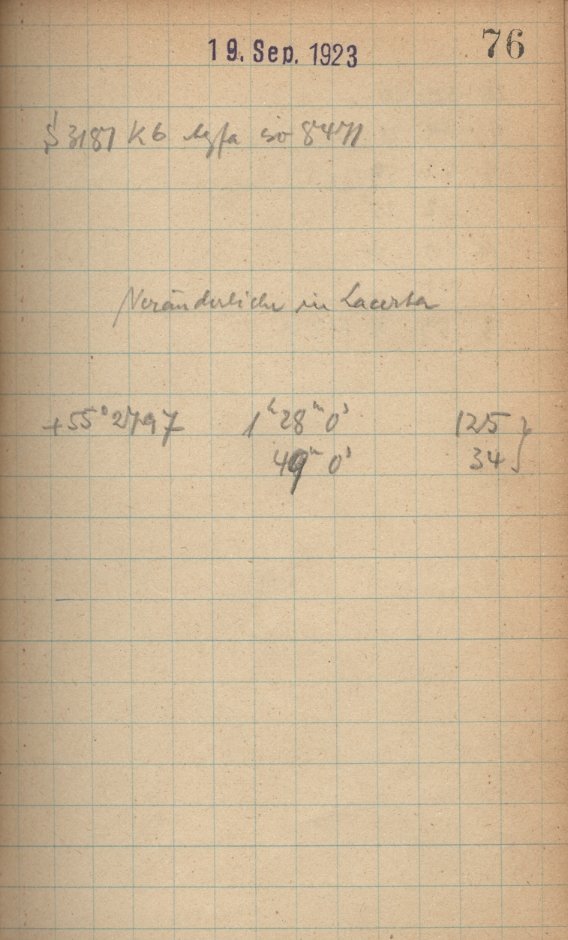 19. Sep. 1923 76
S 3187 K6 Agfa iso 8471
Veränderliche in Lacerta
+55° 2797 1ʰ 28ᵐ 0ˢ 125 }
49ᵐ 0ˢ 34